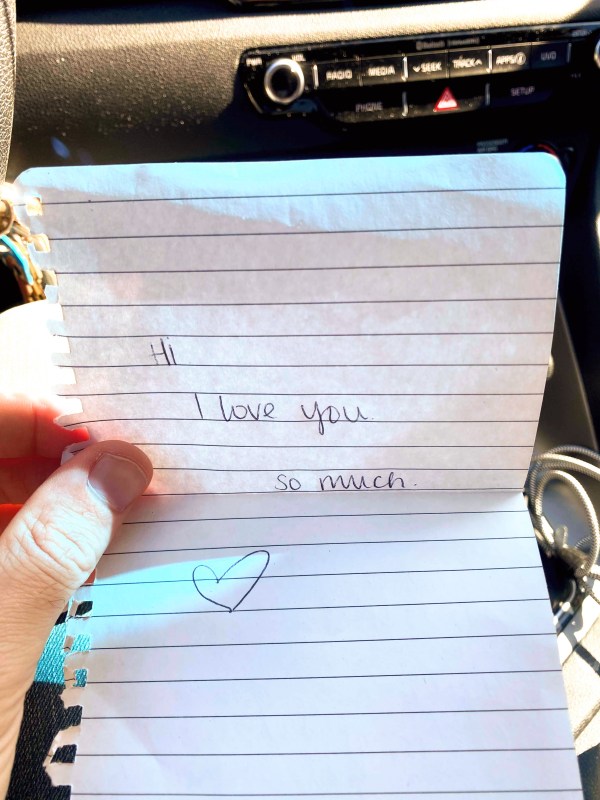 RADIO MEDIA SEEK TRACK APPS
PHONE SETUP
Hi
I love you
so much.